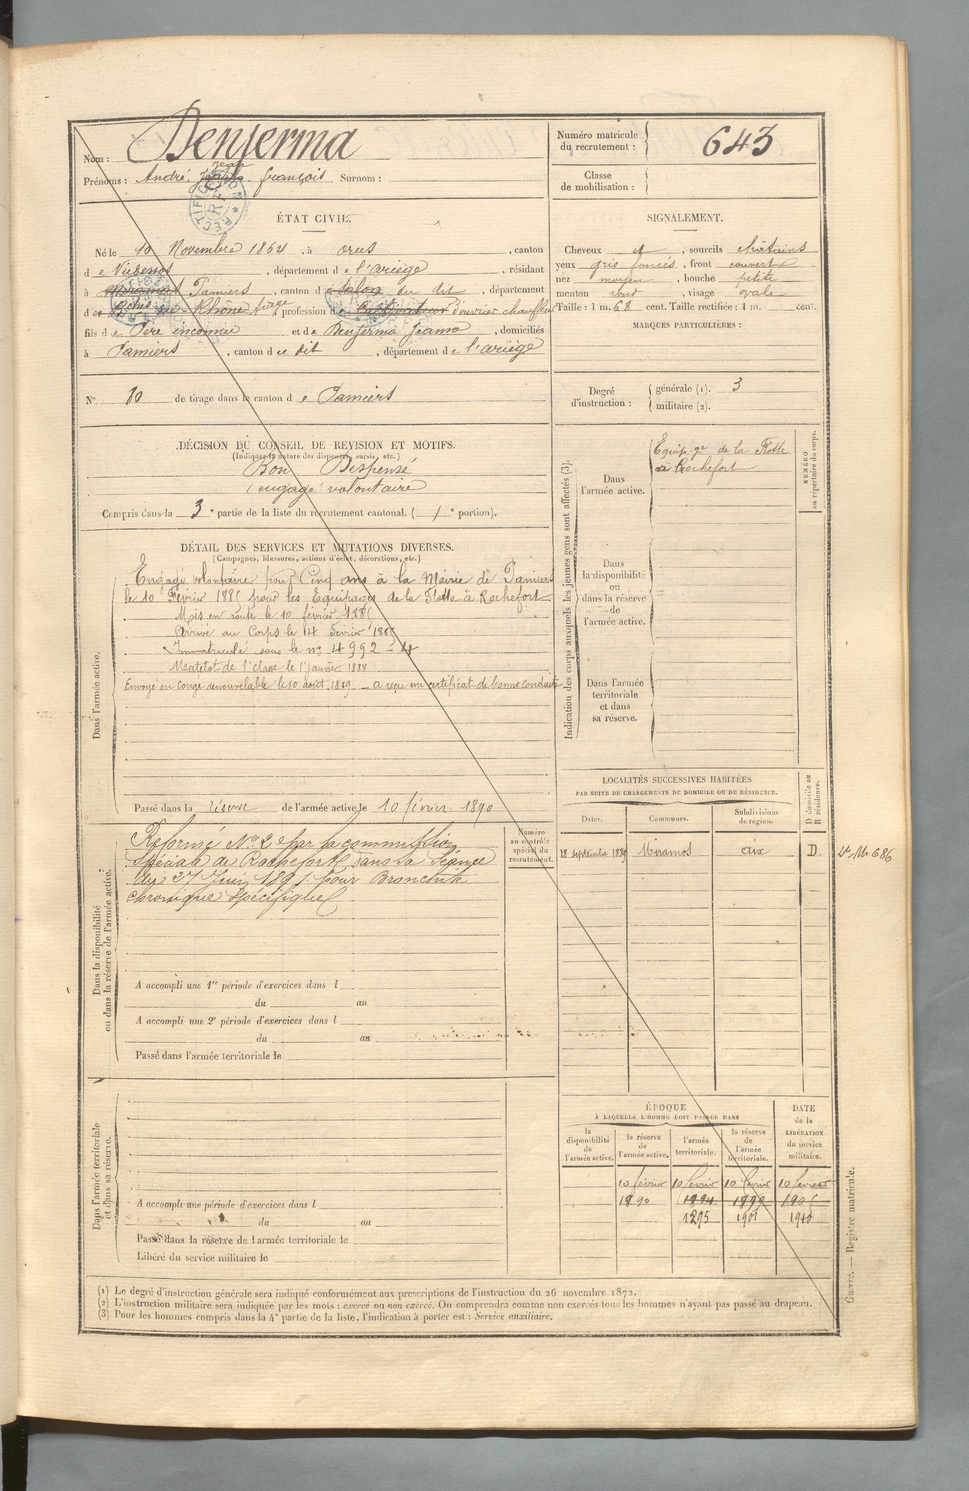 Nom : Denjerma
Numéro matricule du recrutement : 643
Prénoms : André, Jean françois Surnom :
Classe de mobilisation :
ÉTAT CIVIL.
Né le 10 Novembre 1864, à orus, canton
de Vicdessos, département de l'ariège, résidant
à Pamiers, canton de Salon du dit, département
des Bches du Rhône, profession de Cultivateur d'ouvrier chauffeur
fils de Père inconnu et de Denjerma Jeanne, domiciliés
à Pamiers, canton de ce dit, département de l'ariège
N° 80 de tirage dans le canton de Pamiers
SIGNALEMENT.
Cheveux et, sourcils châtains
yeux gris foncés, front couvert
nez moyen, bouche petite
menton rond, visage ovale
Taille : 1 m. 68 cent. Taille rectifiée : 1 m. cent.
MARQUES PARTICULIÈRES :
Degré d'instruction : générale (1). 3
militaire (2).
DÉCISION DU CONSEIL DE REVISION ET MOTIFS.
(Indiquer la nature des dispenses, sursis, etc.)
Bon Dispensé
engagé volontaire
Compris dans la 3e partie de la liste du recrutement cantonal. (1e portion).
DÉTAIL DES SERVICES ET MUTATIONS DIVERSES.
(Campagnes, blessures, actions d'éclat, décorations, etc.)
Dans l'armée active.
Engagé volontaire pour Cinq ans à la Mairie de Pamiers
le 10 Février 1885 pour les Equipages de la Flotte à Rochefort
Mis en route le 10 février 1885
Arrivé au Corps le 14 Février 1885
Immatriculé sous le no 4992-4
Matelot de 1e classe le 1er Janvier 1888
Envoyé en congé renouvelable le 10 août 1889 _ a reçu un certificat de bonne conduite
Passé dans la réserve de l'armée active le 10 février 1890
Numéro au contrôle spécial du recrutement.
Dans la disponibilité ou dans la réserve de l'armée active.
Réformé No 2 par la commission
spéciale de Rochefort dans sa séance
du 27 Juin 1891 pour Bronchite
chronique spécifique
A accompli une 1re période d'exercices dans l
du au
A accompli une 2e période d'exercices dans l
du au
Passé dans l'armée territoriale le
Dans l'armée territoriale et dans sa réserve.
A accompli une période d'exercices dans l
du au
Passé dans la réserve de l'armée territoriale le
Libéré du service militaire le
Indication des corps auxquels les jeunes gens sont affectés (3).
NUMÉRO au répertoire du corps.
Dans l'armée active.
Equip. ges de la Flotte
à Rochefort
Dans la disponibilité ou dans la réserve de l'armée active.
Dans l'armée territoriale et dans sa réserve.
LOCALITÉS SUCCESSIVES HABITÉES
PAR SUITE DE CHANGEMENTS DE DOMICILE OU DE RÉSIDENCE.
Dates. Communes. Subdivisions de région. D domicile ou R résidence.
18 septembre 1889 Miramas aix D.
ÉPOQUE
À LAQUELLE L'HOMME DOIT PASSER DANS
DATE de la LIBÉRATION du service militaire.
la disponibilité de l'armée active.
la réserve de l'armée active.
l'armée territoriale.
la réserve de l'armée territoriale.
10 février 10 février 10 février 10 février
1890 1894 1899 1905
1895 1901 1910
(1) Le degré d'instruction générale sera indiqué conformément aux prescriptions de l'instruction du 26 novembre 1872.
(2) L'instruction militaire sera indiquée par les mots : exercé ou non exercé. On comprendra comme non exercés tous les hommes n'ayant pas passé au drapeau.
(3) Pour les hommes compris dans la 4e partie de la liste, l'indication à porter est : Service auxiliaire.
Guerre. — Registre matricule.